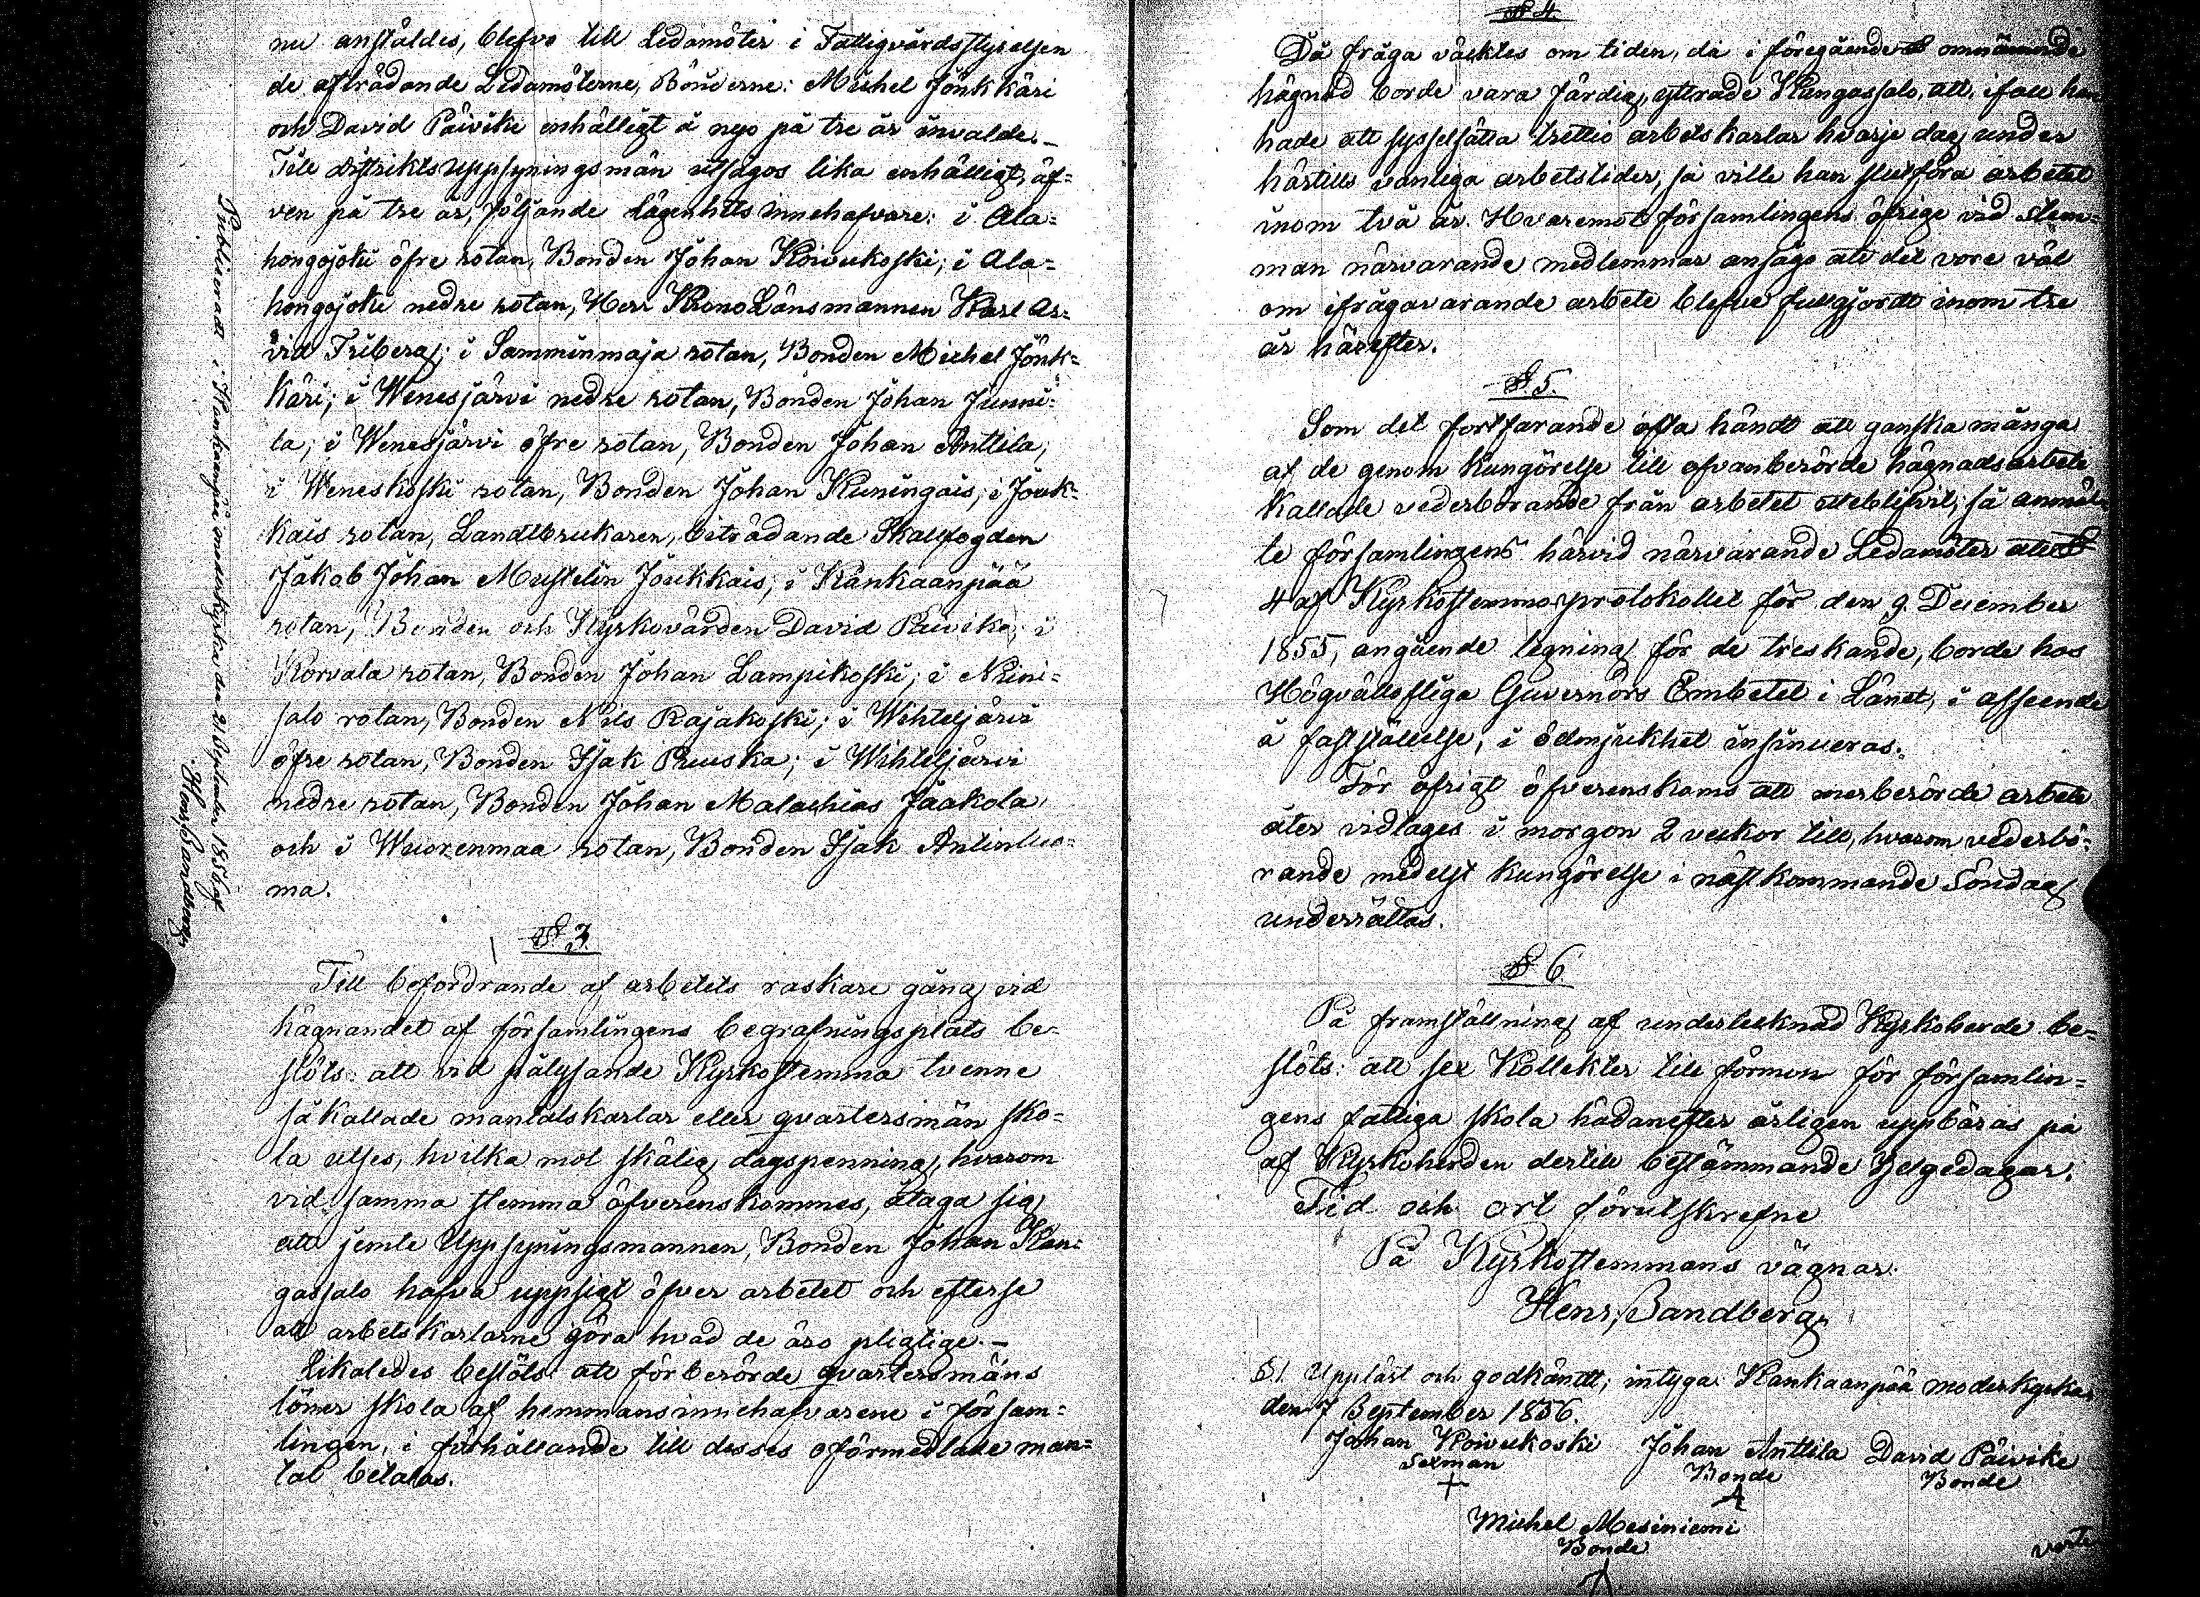 nu anstäldes, blefvo till Ledamöter i Fattigvårdsstyrelsen
de afträdande Ledamöterne, Bönderne: Michel Jönkkäri
och David Päivike enhälligt å nyo på tre år invalde.—
Till distriktsuppsyningsmän utsågos lika enhälligt, äf=
ven på tre år, följande Lägenhets innehafvare: i Ala=
hongojoki öfre rotan, Bonden Johan Koivukoski; i Ala=
hongojoki nedre rotan, Herr KronoLänsmannen Karl Ar=
vid Friberg; i Samminmaja rotan, Bonden Michel Jönk=
käri; i Wenesjärvi nedre rotan, Bonden Johan Junni=
la; i Wenesjärvi öfre rotan, Bonden Johan Anttila;
i Weneskoski rotan, Bonden Johan Kuningais; i Jouk=
kais rotan, Landtbrukaren, biträdande Skallfogden
Jakob Johan Mustelin Joukkais; i Kankaanpää
rotan, Bonden och Kyrkovärden David Päivike; i
Korvala rotan, Bonden Johan Lampikoski; i Niini=
salo rotan, Bonden Nils Rajakoski; i Wihteljärvi
öfre rotan, Bonden Isak Pruuska; i Wihteljärvi
nedre rotan, Bonden Johan Malachias Jaakola
och i Wuorenmaa rotan, Bonden Isak Antinluo=
ma.
§ 3.
Till befordrande af arbetets raskare gång vid
hägnandet af församlingens begrafningsplats be=
slöts: att vid pålysande Kyrkostemma tvenne
såkallade mantalskarlar eller qvartersmän sko=
la utses, hvilka mot skälig dagspenning, hvarom
vid samma stemma öfverenskommes, åtaga sig
att jemte Uppsyningsmannen, Bonden Johan Kan=
gassalo hafva uppsigt öfver arbetet och efterse
att arbetskarlarne göra hvad de äro pligtige.—
Likaledes beslöts: att förberörde qvartersmäns
löner skola af hemmansinnehafvarene i försam=
lingen, i förhållande till desses oförmedlade man=
tal betalas.
Publiceradt i Kankaanpää moderkyrka den 21 September 1856 af
Henr. Sandberg
§ 4.
Då fråga väcktes om tiden, då i föregående § omnämnde
hägnad borde vara färdig, yttrade Kangassalo, att, ifall han
hade att sysselsätta trettio arbetskarlar hvarje dag under
härtills vanliga arbetstider, så ville han slutföra arbetet
inom två år. Hvaremot församlingens öfrige vid stem=
man närvarande medlemmar ansågo att det vore väl
om ifrågavarande arbete blefve fullgjordt inom tre
år härefter.
§ 5.
Som det fortfarande ofta händt att ganska många
af de genom kungörelse till ofvanberörde hägnadsarbete
kallade vederbörande från arbetet uteblifvit, så anmäl=
te församlingens härvid närvarande Ledamöter att §
4 af Kyrkostemmoprotokollet för den 9 December
1855, angående legning för de treskande, borde hos
Högvällofliga Guvernörs Embetet i Länet, i afseende
å fastställelse, i ödmjukhet insinueras.
För öfrigt öfverenskoms att merberörde arbete
åter vidtages i morgon 2 veckor till, hvarom vederbö=
rande medelst kungörelse i nästkommande Söndag
underrättas.
§ 6
På framställning af undertecknad Kyrkoherde be=
slöts: att sex Kollekter till förmon för församlin=
gens fattiga skola hädanefter årligen uppbäras på
af Kyrkoherden dertill bestämmande Helgedagar.
Tid och ort förutskrefne
På Kyrkostemmans vägnar:
Henr. Sandberg
Uppläst och godkändt; intyga: Kankaanpää moderkyrka
den 7 September 1856.
Johan Koivukoski Johan Anttila David Päivike
Sexman Bonde Bonde
Michel Mesiniemi
Bonde
verte